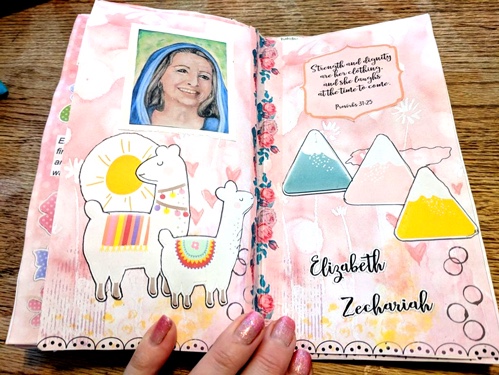 Strength and dignity
are her clothing,
and she laughs
at the time to come.
Proverbs 31:25
Elizabeth
Zechariah